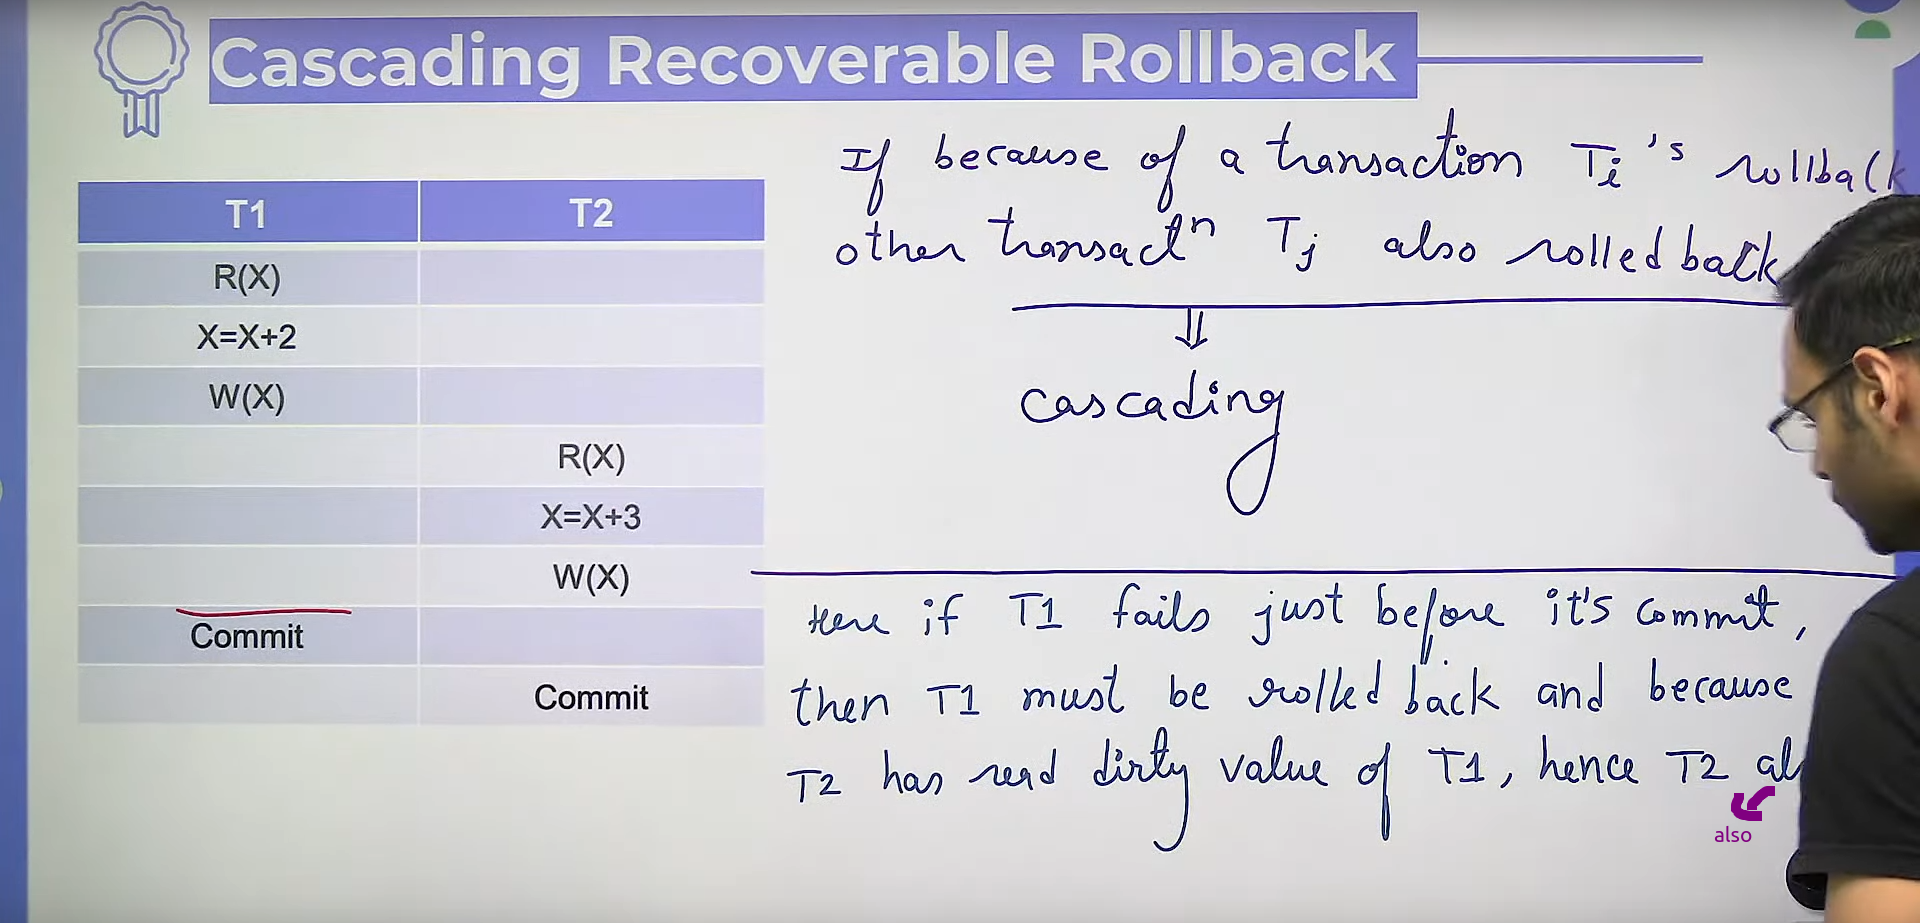 Cascading Recoverable Rollback
T1 T2
R(X)
X=X+2
W(X)
R(X)
X=X+3
W(X)
Commit
Commit
If because of a transaction Ti's rollback
other transactn Tj also rolled back
⇓
cascading
Here if T1 fails just before it's commit,
then T1 must be rolled back and because
T2 has read dirty value of T1, hence T2 al
also